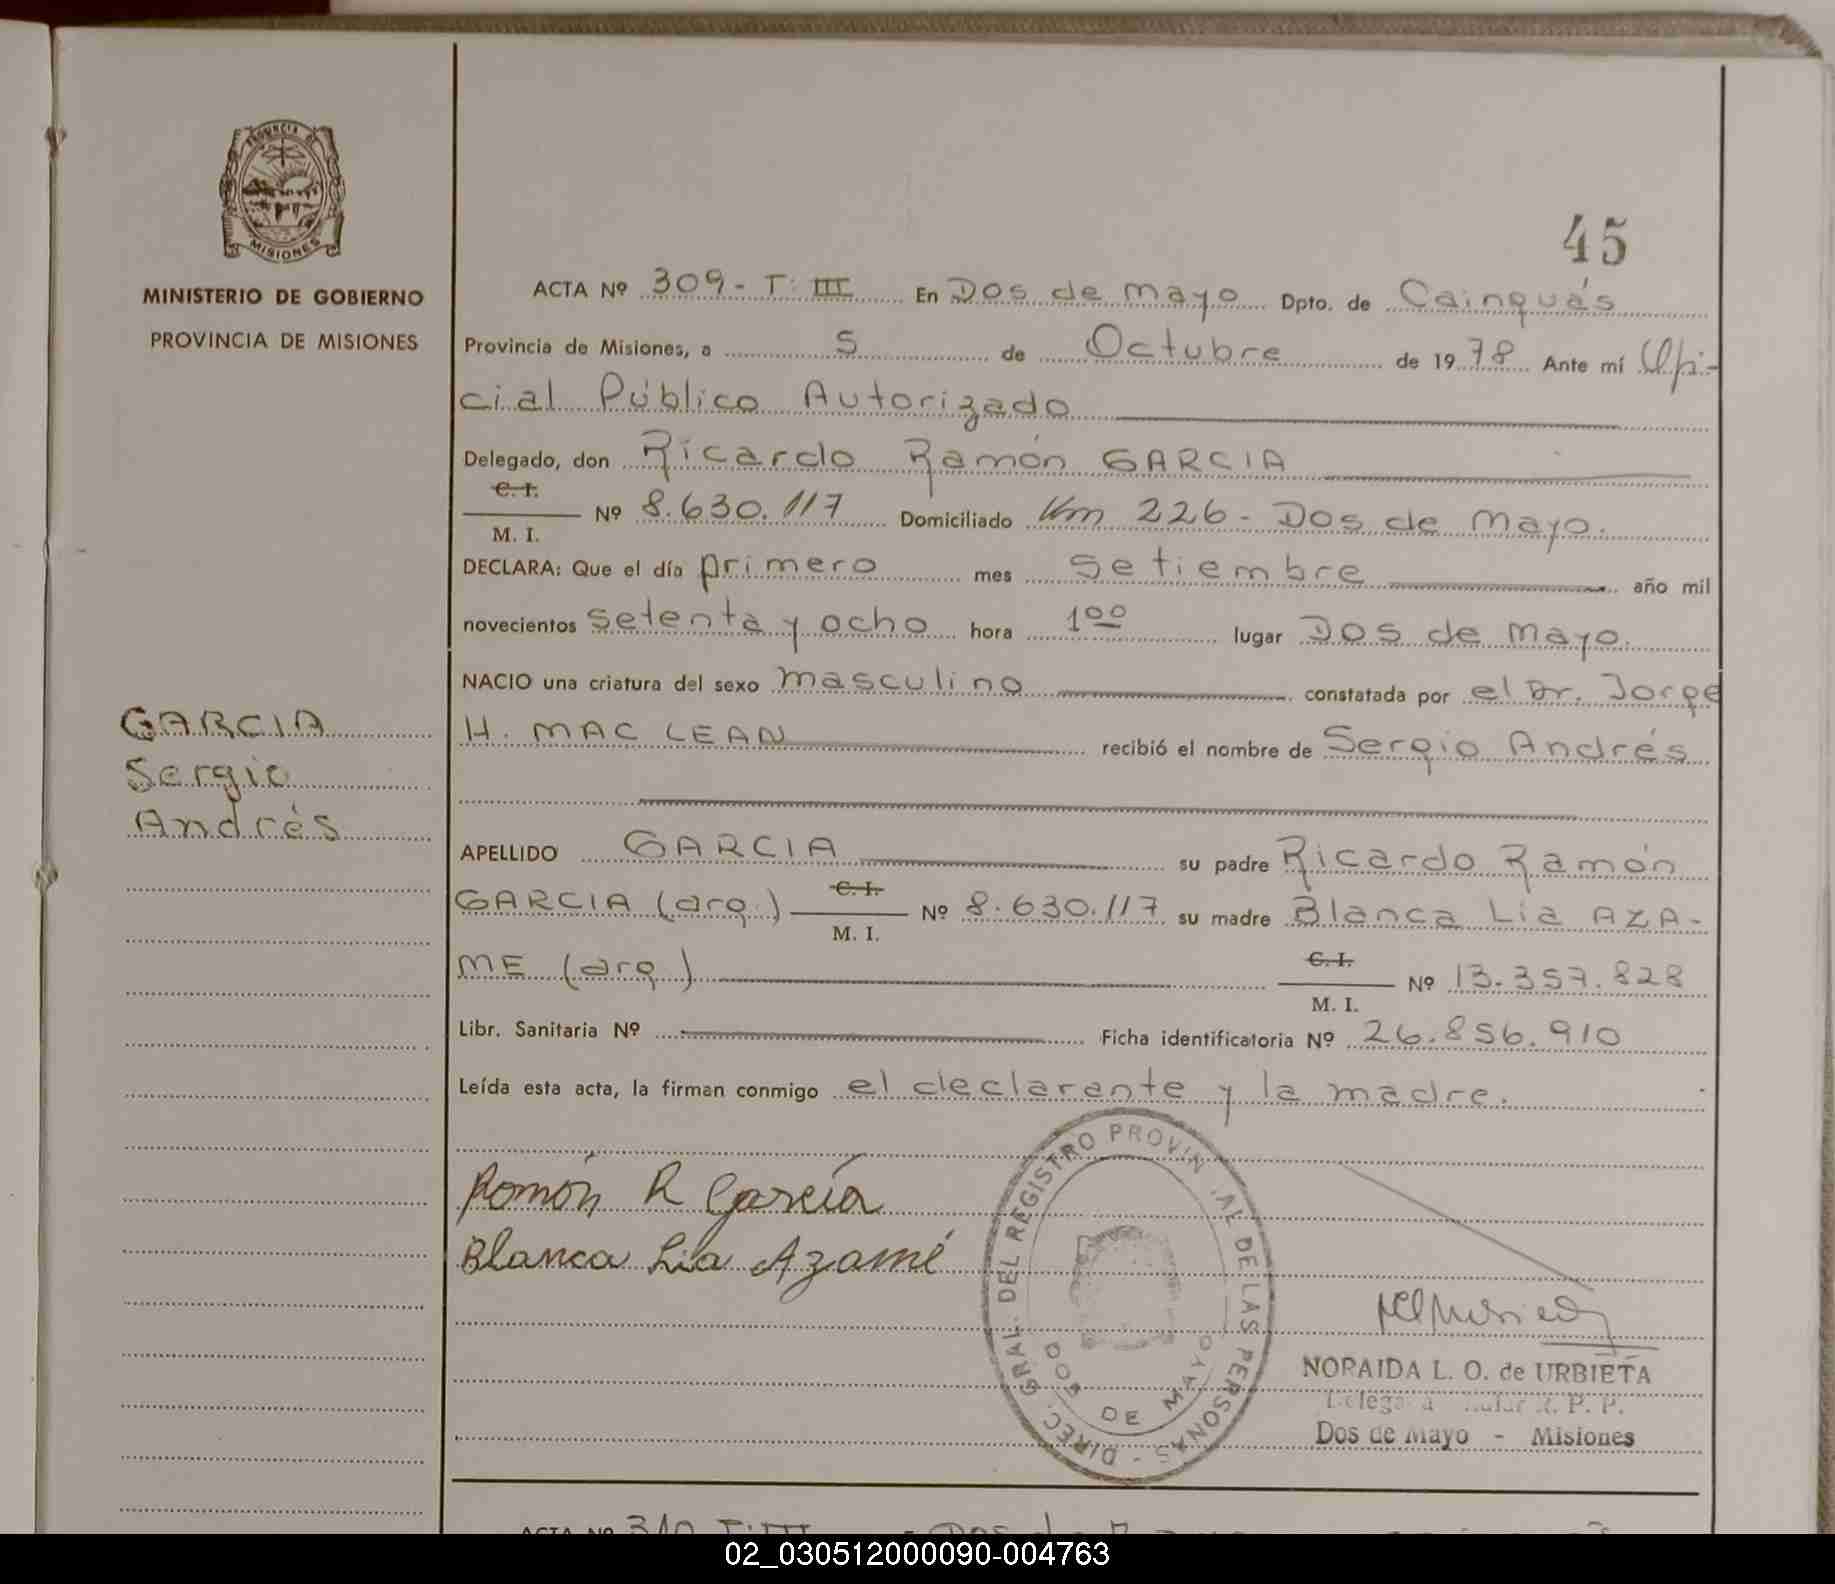 PROVINCIA DE
MISIONES
MINISTERIO DE GOBIERNO
PROVINCIA DE MISIONES
GARCIA
Sergio
Andrés
45
ACTA Nº 309 - T: III En Dos de Mayo Dpto. de Cainguás
Provincia de Misiones, a 5 de Octubre de 1978 Ante mí Ofi-
cial Público Autorizado
Delegado, don Ricardo Ramón GARCIA
C. I.
M. I. Nº 8.630.117 Domiciliado Km 226 - Dos de Mayo.
DECLARA: Que el día primero mes setiembre año mil
novecientos setenta y ocho hora 1 00 lugar Dos de Mayo.
NACIO una criatura del sexo masculino constatada por el Dr. Jorge
H. MAC LEAN recibió el nombre de Sergio Andrés
APELLIDO GARCIA su padre Ricardo Ramón
GARCIA (arg.) C. I. M. I. Nº 8.630.117 su madre Blanca Lia AZA-
ME (arg.) C. I. M. I. Nº 13.357.828
Libr. Sanitaria Nº Ficha identificatoria Nº 26.856.910
Leída esta acta, la firman conmigo el declarante y la madre.
Ramón R García
Blanca Lia Azamé
DIREC. GRAL. DEL REGISTRO PROVIN .AL DE LAS PERSONAS -
DOS DE MAYO
NORAIDA L. O. de URBIETA
R. P. P.
Dos de Mayo - Misiones
ACTA Nº 310 T: III
02_030512000090-004763